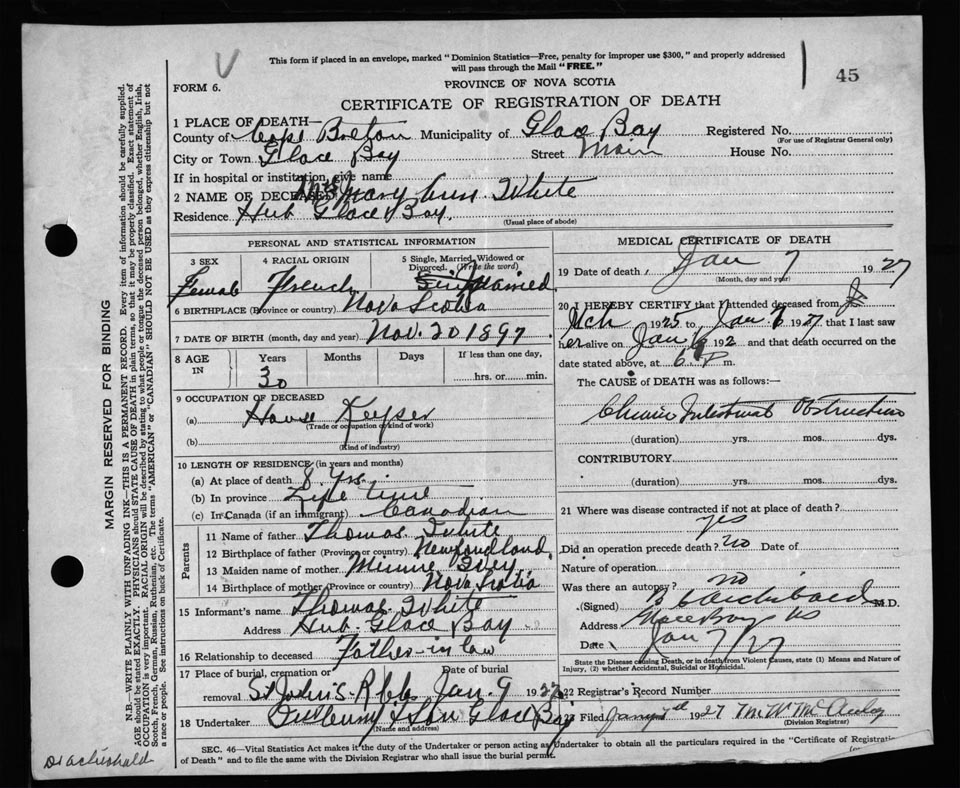 This form if placed in an envelope, marked "Dominion Statistics—Free, penalty for improper use $300," and properly addressed
will pass through the Mail "FREE."
45
FORM 6.
PROVINCE OF NOVA SCOTIA
CERTIFICATE OF REGISTRATION OF DEATH
1 PLACE OF DEATH—
County of Cape Breton Municipality of Glace Bay Registered No.
(For use of Registrar General only)
City or Town Glace Bay Street Main House No.
If in hospital or institution, give name
2 NAME OF DECEASED Mrs Mary Ann White
Residence Hub Glace Bay.
(Usual place of abode)
PERSONAL AND STATISTICAL INFORMATION
3 SEX 4 RACIAL ORIGIN 5 Single, Married, Widowed or Divorced. (Write the word)
Female French Married
6 BIRTHPLACE (Province or country) Nova Scotia
7 DATE OF BIRTH (month, day and year) Nov. 20 1897
8 AGE IN Years Months Days If less than one day,
30 hrs. or min.
9 OCCUPATION OF DECEASED
(a) House Keyper
(Trade or occupation or kind of work)
(b)
(Kind of industry)
10 LENGTH OF RESIDENCE (in years and months)
(a) At place of death 8 Yrs.
(b) In province Life Time
(c) In Canada (if an immigrant) Canadian
Parents
11 Name of father Thomas White
12 Birthplace of father (Province or country) Newfoundland.
13 Maiden name of mother Minnie
14 Birthplace of mother (Province or country) Nova Scotia
15 Informant's name Thomas White
Address Hub Glace Bay
16 Relationship to deceased Father-in law
17 Place of burial, cremation or removal Date of burial
St John's Jan. 9 1927
18 Undertaker & Son Glace Bay
(Name and address)
MEDICAL CERTIFICATE OF DEATH
19 Date of death Jan 7 1927
(Month, day and year)
20 I HEREBY CERTIFY that I attended deceased from
1925 to Jan 7 1927 that I last saw
her alive on Jan 6 192 and that death occurred on the
date stated above, at 6 P m.
The CAUSE of DEATH was as follows:—
Chronic Intestinal Obstruction
(duration) yrs. mos. dys.
CONTRIBUTORY
(duration) yrs. mos. dys.
21 Where was disease contracted if not at place of death?
yes
Did an operation precede death? no Date of
Nature of operation
Was there an autopsy? no
(Signed) Archibald M.D.
Address Glace Bay NS
Date Jan 7/27
State the Disease causing Death, or in death from Violent Causes, state (1) Means and Nature of
Injury, (2) whether Accidental, Suicidal or Homicidal.
22 Registrar's Record Number
23 Filed Jany 7th 1927 M W McAulay
(Division Registrar)
SEC. 46—Vital Statistics Act makes it the duty of the Undertaker or person acting as Undertaker to obtain all the particulars required in the "Certificate of Registration
of Death" and to file the same with the Division Registrar who shall issue the burial permit.
MARGIN RESERVED FOR BINDING
N.B.—WRITE PLAINLY WITH UNFADING INK—THIS IS A PERMANENT RECORD. Every item of information should be carefully supplied.
AGE should be stated EXACTLY. PHYSICIANS should STATE CAUSE OF DEATH in plain terms, so that it may be properly classified. Exact statement of
OCCUPATION is very important. RACIAL ORIGIN will be described by stating to what people or tongue the deceased person belonged, whether English, Irish,
Scotch, French, German, Russian, Ruthenian, etc. The terms "AMERICAN" or "CANADIAN" SHOULD NOT BE USED as they express citizenship but not
a race or people. See instructions on back of Certificate.
Dr Archibald